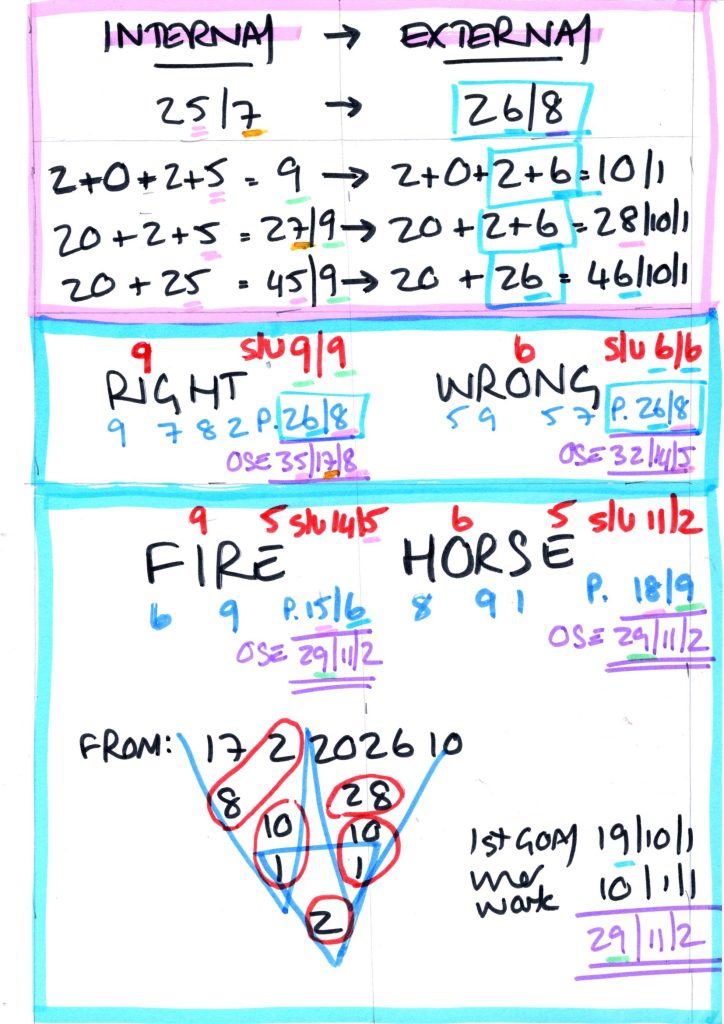 INTERNAL → EXTERNAL
25/7 → 26/8
2+0+2+5 = 9 → 2+0+2+6=10/1
20+2+5 = 27/9 → 20+2+6=28/10/1
20+25 = 45/9 → 20+26=46/10/1
9 s/u 9/9
RIGHT
9 7 8 2 P. 26/8
OSE 35/17/8
6 s/u 6/6
WRONG
5 9 5 7 P. 26/8
OSE 32/14/5
9 5 s/u 14/5
FIRE
6 9 P. 15/6
OSE 29/11/2
6 5 s/u 11/2
HORSE
8 9 1 P. 18/9
OSE 29/11/2
FROM: 17 2 2026 10
8 28
10 10
1 1
2
1st GOAL 19/10/1
work 10/1/1
29/11/2